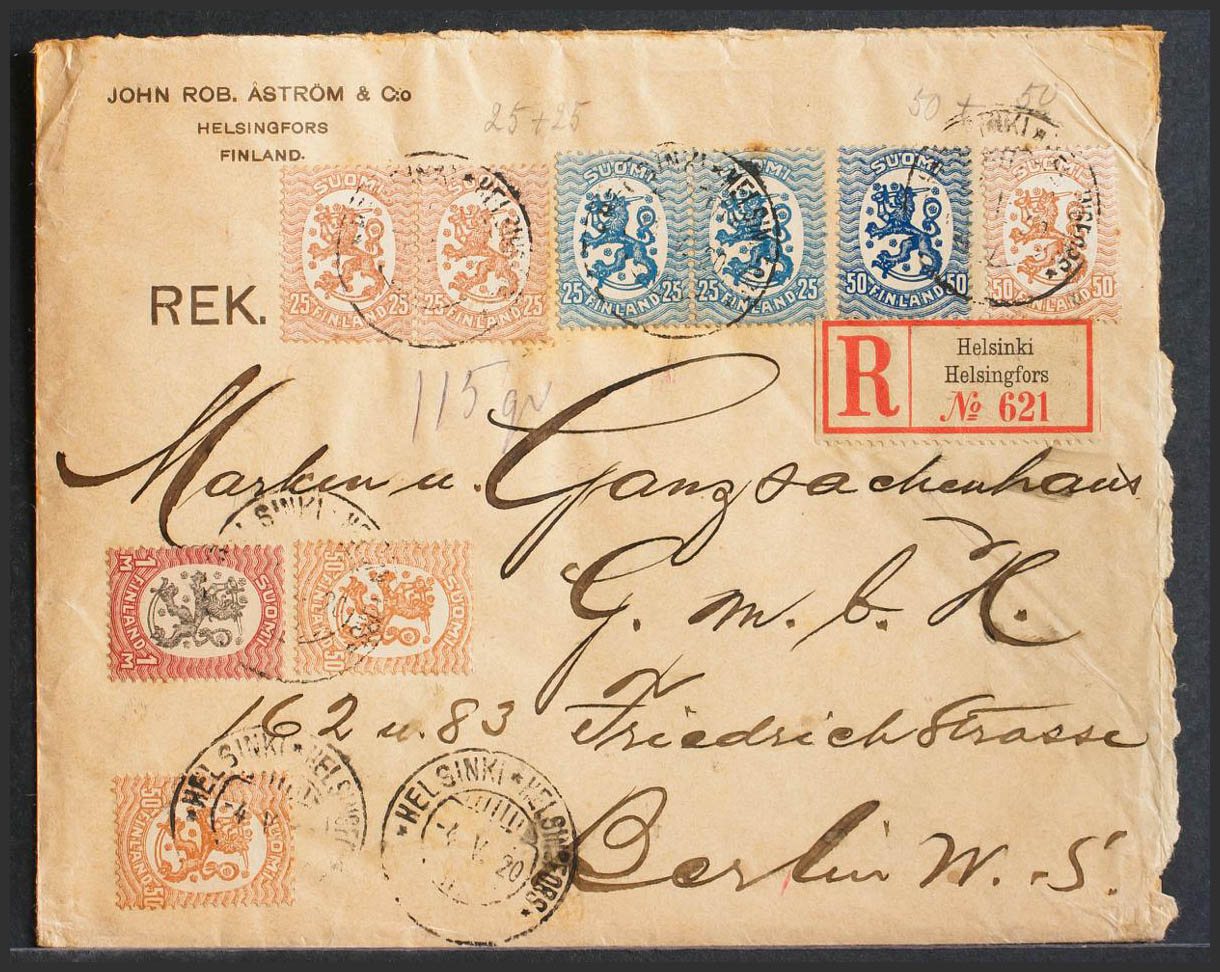 JOHN ROB. ÅSTRÖM & C:o
HELSINGFORS
FINLAND.
25+25
50 + 50
SUOMI
25 FINLAND 25
SUOMI
25 FINLAND 25
SUOMI
25 FINLAND 25
SUOMI
25 FINLAND 25
SUOMI
50 FINLAND 50
SUOMI
50 FINLAND 50
REK.
R
Helsinki
Helsingfors
№ 621
115 gr
Marken u. Ganzsachenhaus
G. m. b. H.
SUOMI
1 M FINLAND 1 M
SUOMI
50 FINLAND 50
162 u. 83 Friedrichstrasse
Berlin W. S.
SUOMI
50 FINLAND 50
HELSINKI * HELSINGFORS
-4. V. 20
HELSINKI * HELSINGFORS *
-4. V. 20